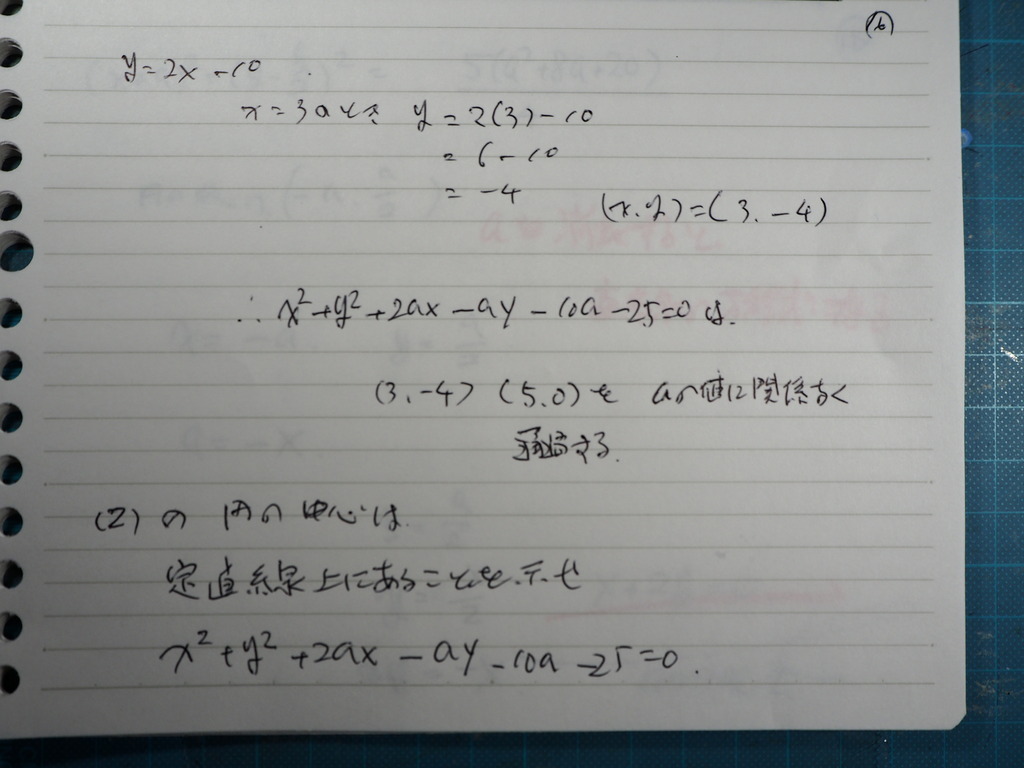 (6)
y=2x-10
x=3のとき y=2(3)-10
=6-10
=-4
(x.y)=(3.-4)
∴ x²+y²+2ax-ay-10a-25=0 は.
(3.-4) (5.0)を aの値に関係なく
通過する.
(2)の 円の中心は.
定直線上にあることを示せ
x²+y²+2ax-ay-10a-25=0.